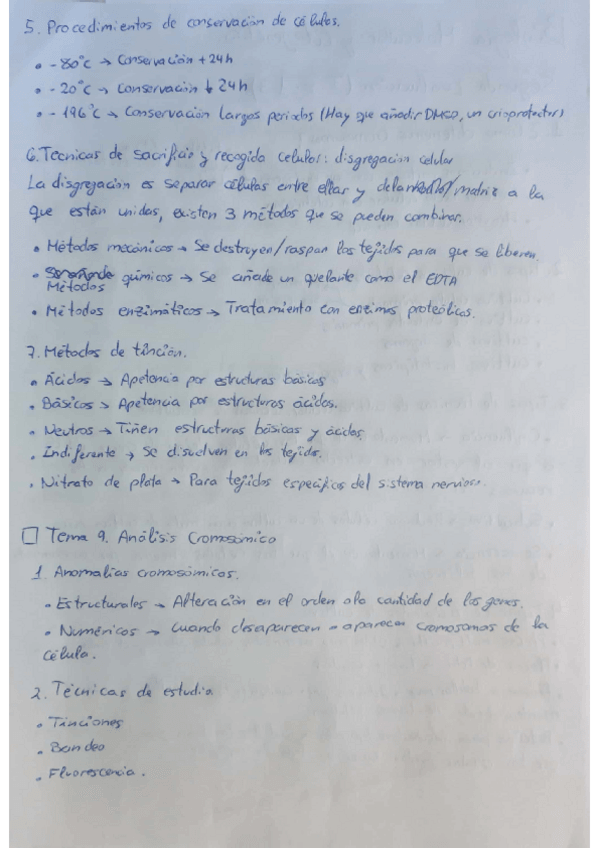 5. Procedimientos de conservación de células.
• -80°C → Conservación +24h
• -20°C → Conservación ↓ 24h
• -196°C → Conservación largos periodos (Hay que añadir DMSO, un crioprotector)
6. Técnicas de sacrificio y recogida celular: disgregación celular
La disgregación es separar células entre ellas y de la /matriz a la
que están unidas, existen 3 métodos que se pueden combinar.
• Métodos mecánicos → Se destruyen/raspan los tejidos para que se liberen.
• Métodos químicos → Se añade un quelante como el EDTA
• Métodos enzimáticos → Tratamiento con enzimas proteólicas.
7. Métodos de tinción.
• Ácidos → Apetencia por estructuras básicas
• Básicos → Apetencia por estructuras ácidas.
• Neutros → Tiñen estructuras básicas y ácidas.
• Indiferente → Se disuelven en los tejidos.
• Nitrato de plata → Para tejidos específicos del sistema nervioso.
□ Tema 9. Análisis Cromosómico
1. Anomalías cromosómicas.
• Estructurales → Alteración en el orden o la cantidad de los genes.
• Numéricos → Cuando desaparecen o aparecen cromosomas de la
célula.
2. Técnicas de estudio
• Tinciones
• Bandeo
• Fluorescencia.